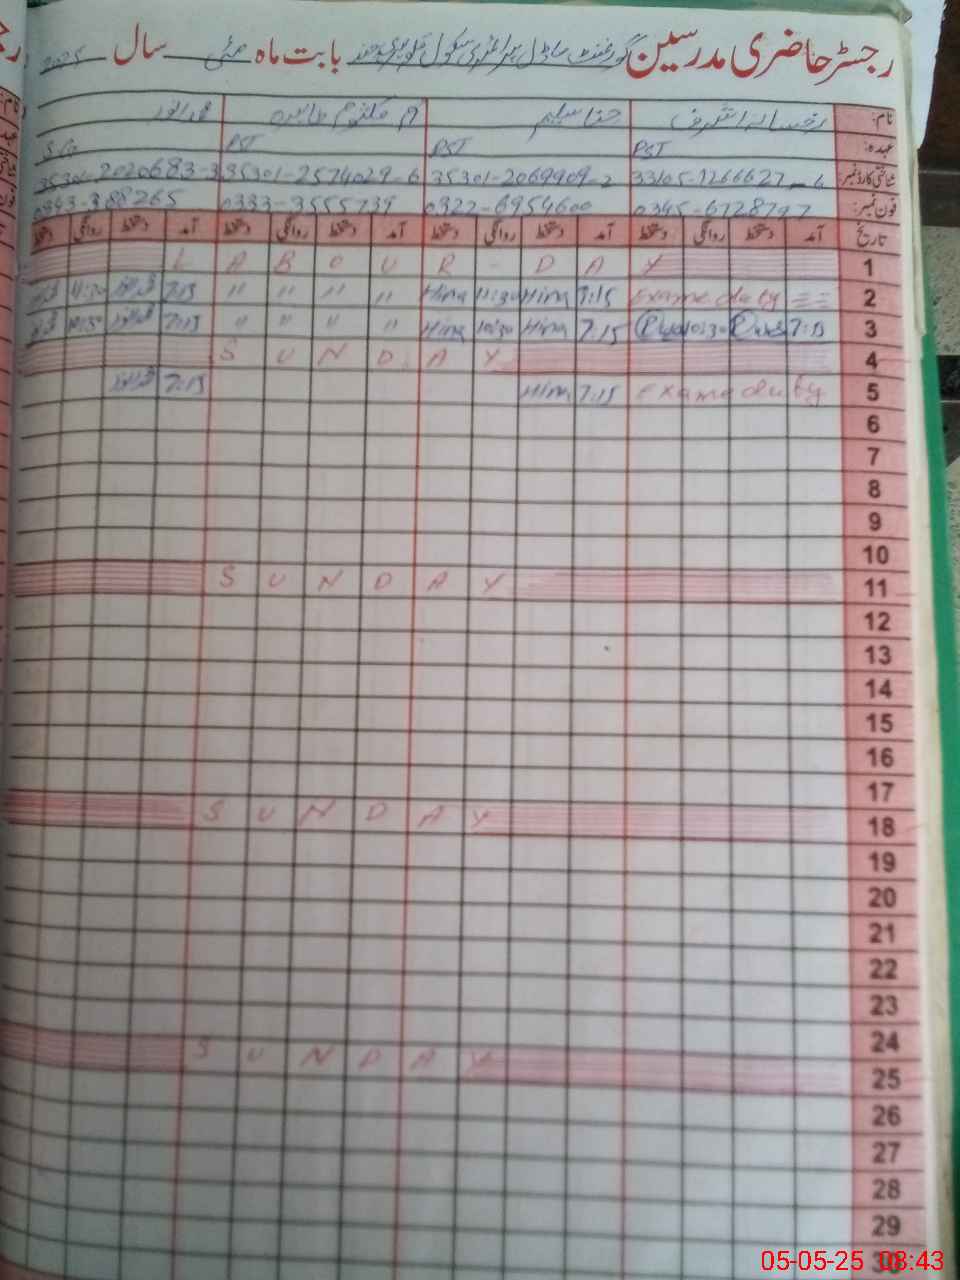 رجسٹر حاضری مدرسین گورنمنٹ ماڈل پرائمری سکول بابت ماہ مئی سال 2025
نام: رخسانہ اشرف حنا سلیم ام کلثوم طاہرہ
عہدہ: PST PST PST
شناختی کارڈ نمبر: 33105-1266627-6 35301-2069909-2 35301-2574029-6 35301-2020683-3
فون نمبر: 0345-6728797 0322-6954600 0333-3555739
تاریخ آمد دستخط روانگی دستخط آمد دستخط روانگی دستخط آمد دستخط روانگی دستخط آمد دستخط روانگی دستخط
1 LABOUR-DAY
2 Exame duty 7:15 Hina 11:30 Hina " " " " 7:15
3 7:15 10:30 7:15 Hina 10:30 Hina " " " " 7:15 10:30
4 SUNDAY
5 Exame duty 7:15 Hina 7:15
6
7
8
9
10
11 SUNDAY
12
13
14
15
16
17
18 SUNDAY
19
20
21
22
23
24
25 SUNDAY
26
27
28
29
30
05-05-25 08:43